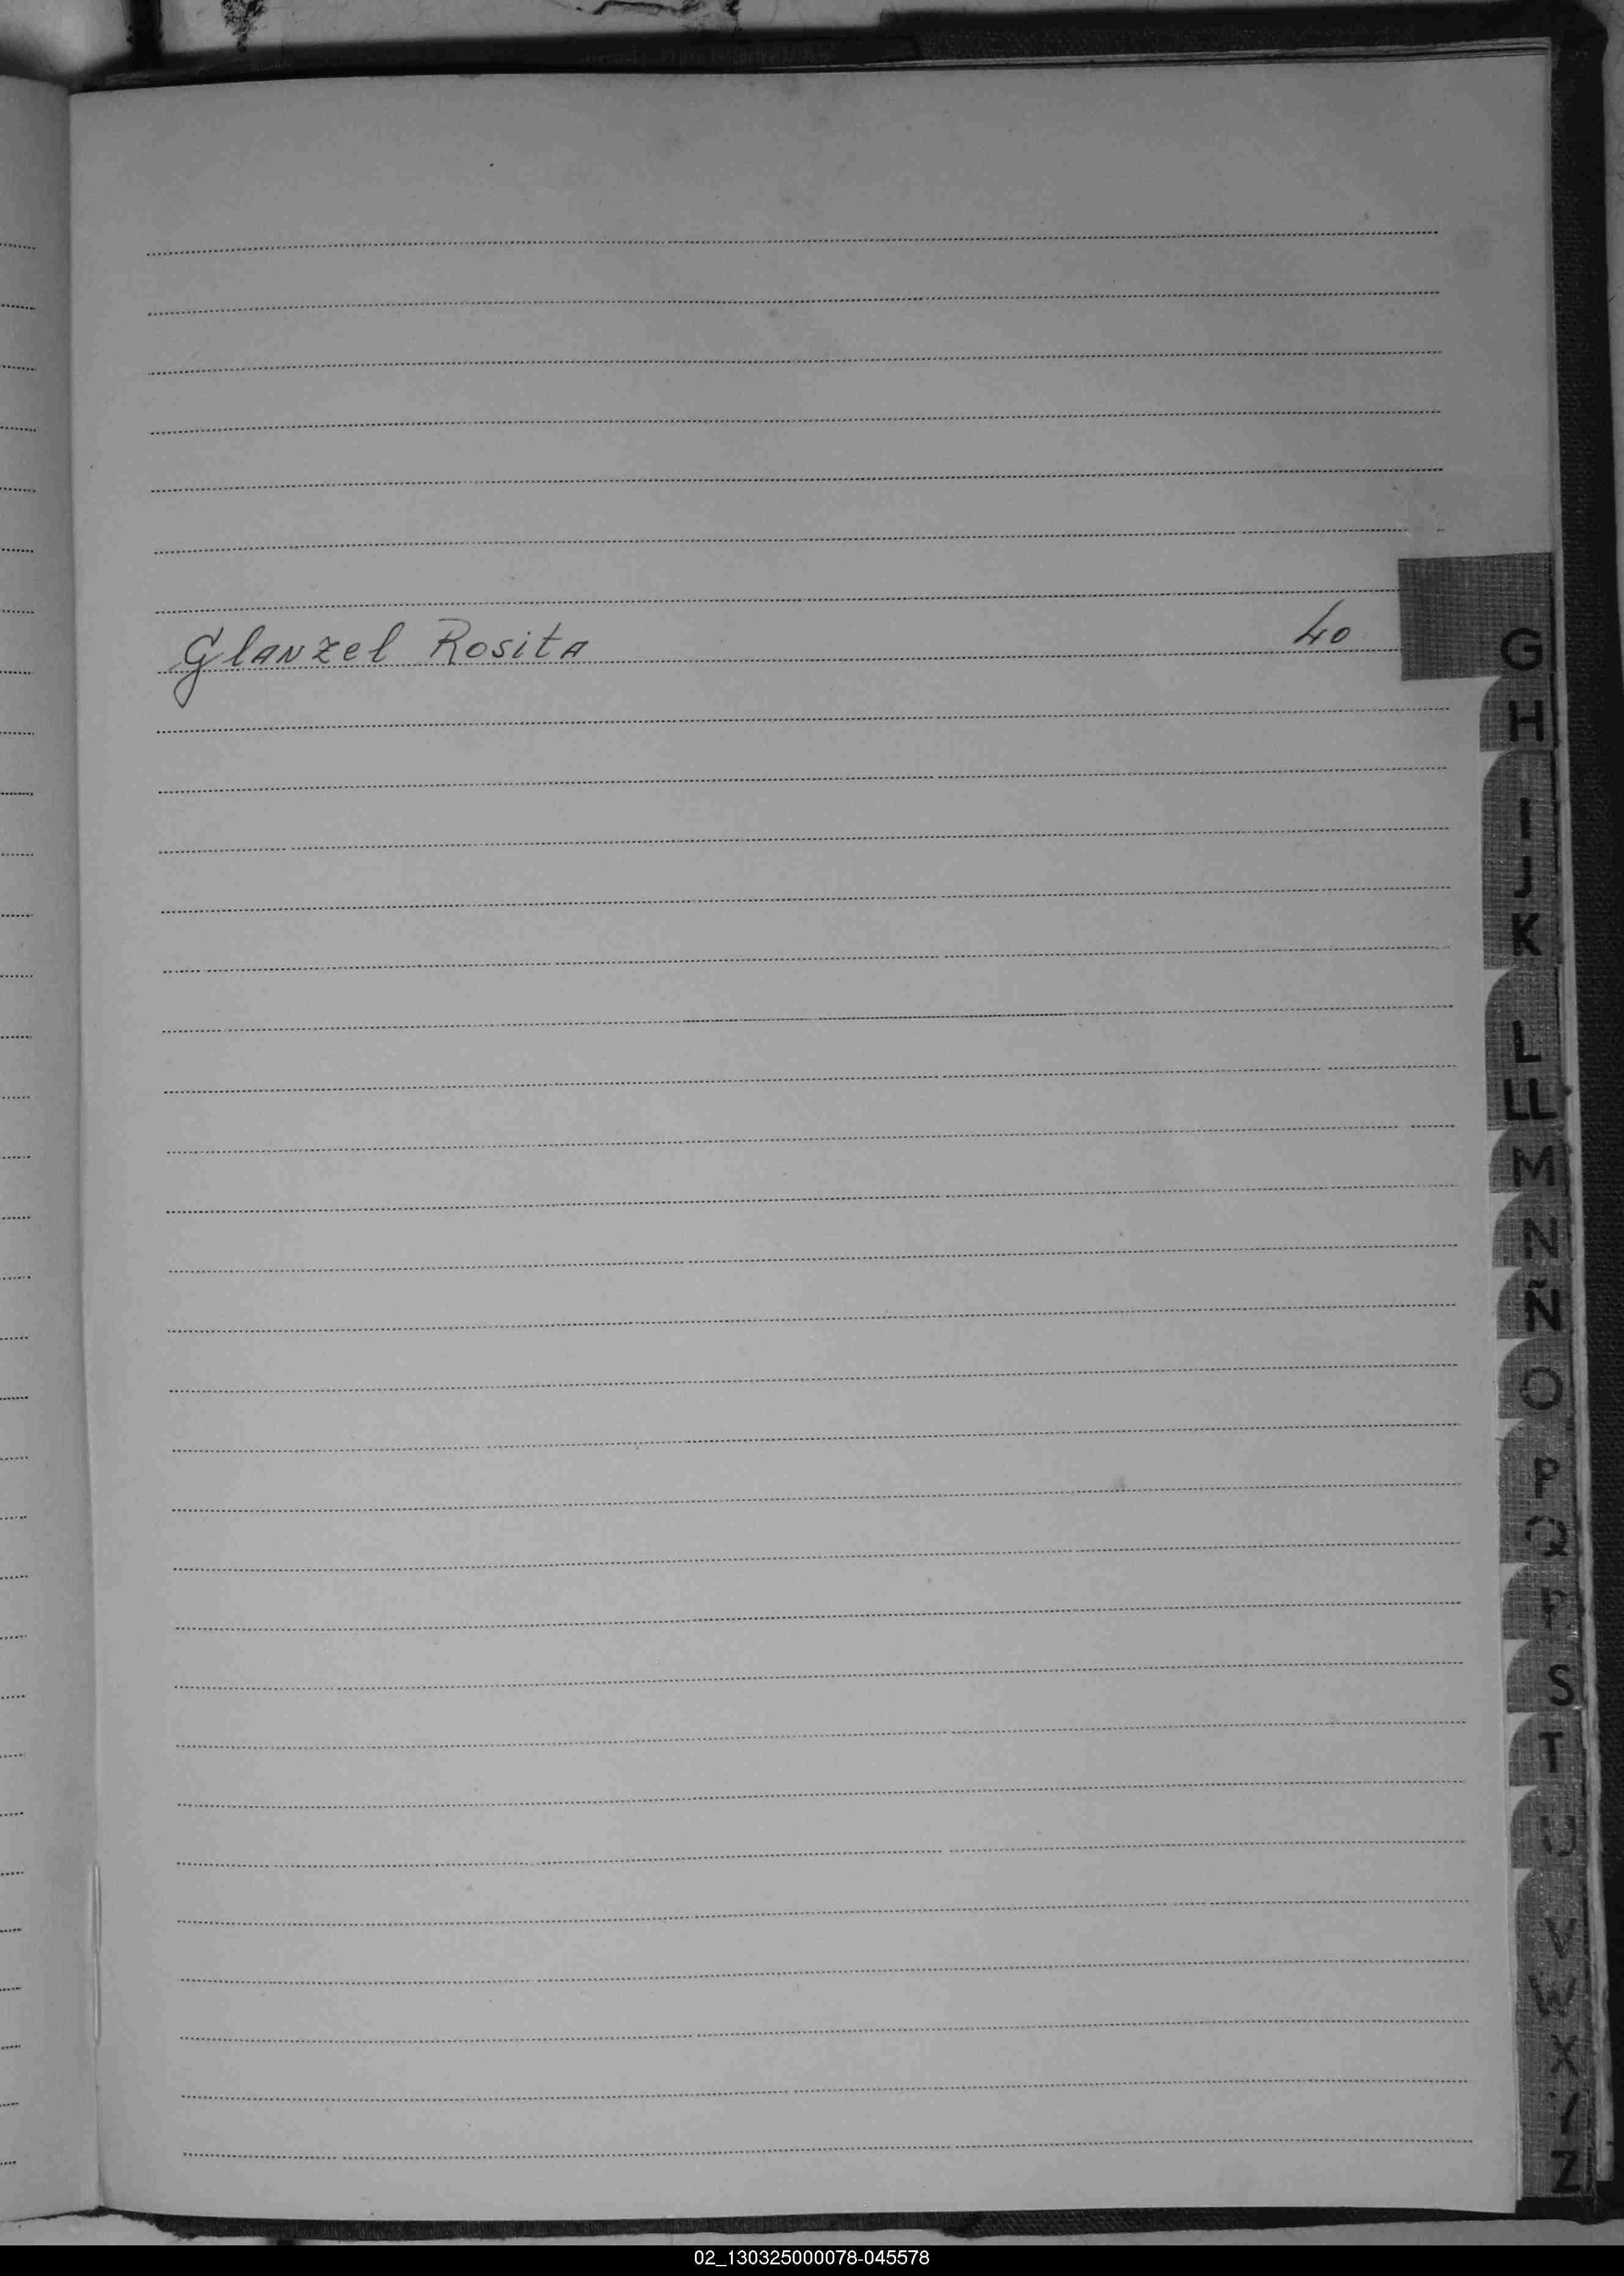 Glanzel Rosita 40
G
H
I
J
K
L
LL
M
N
Ñ
O
P
Q
R
S
T
U
V
W
X
Y
Z
02_130325000078-045578